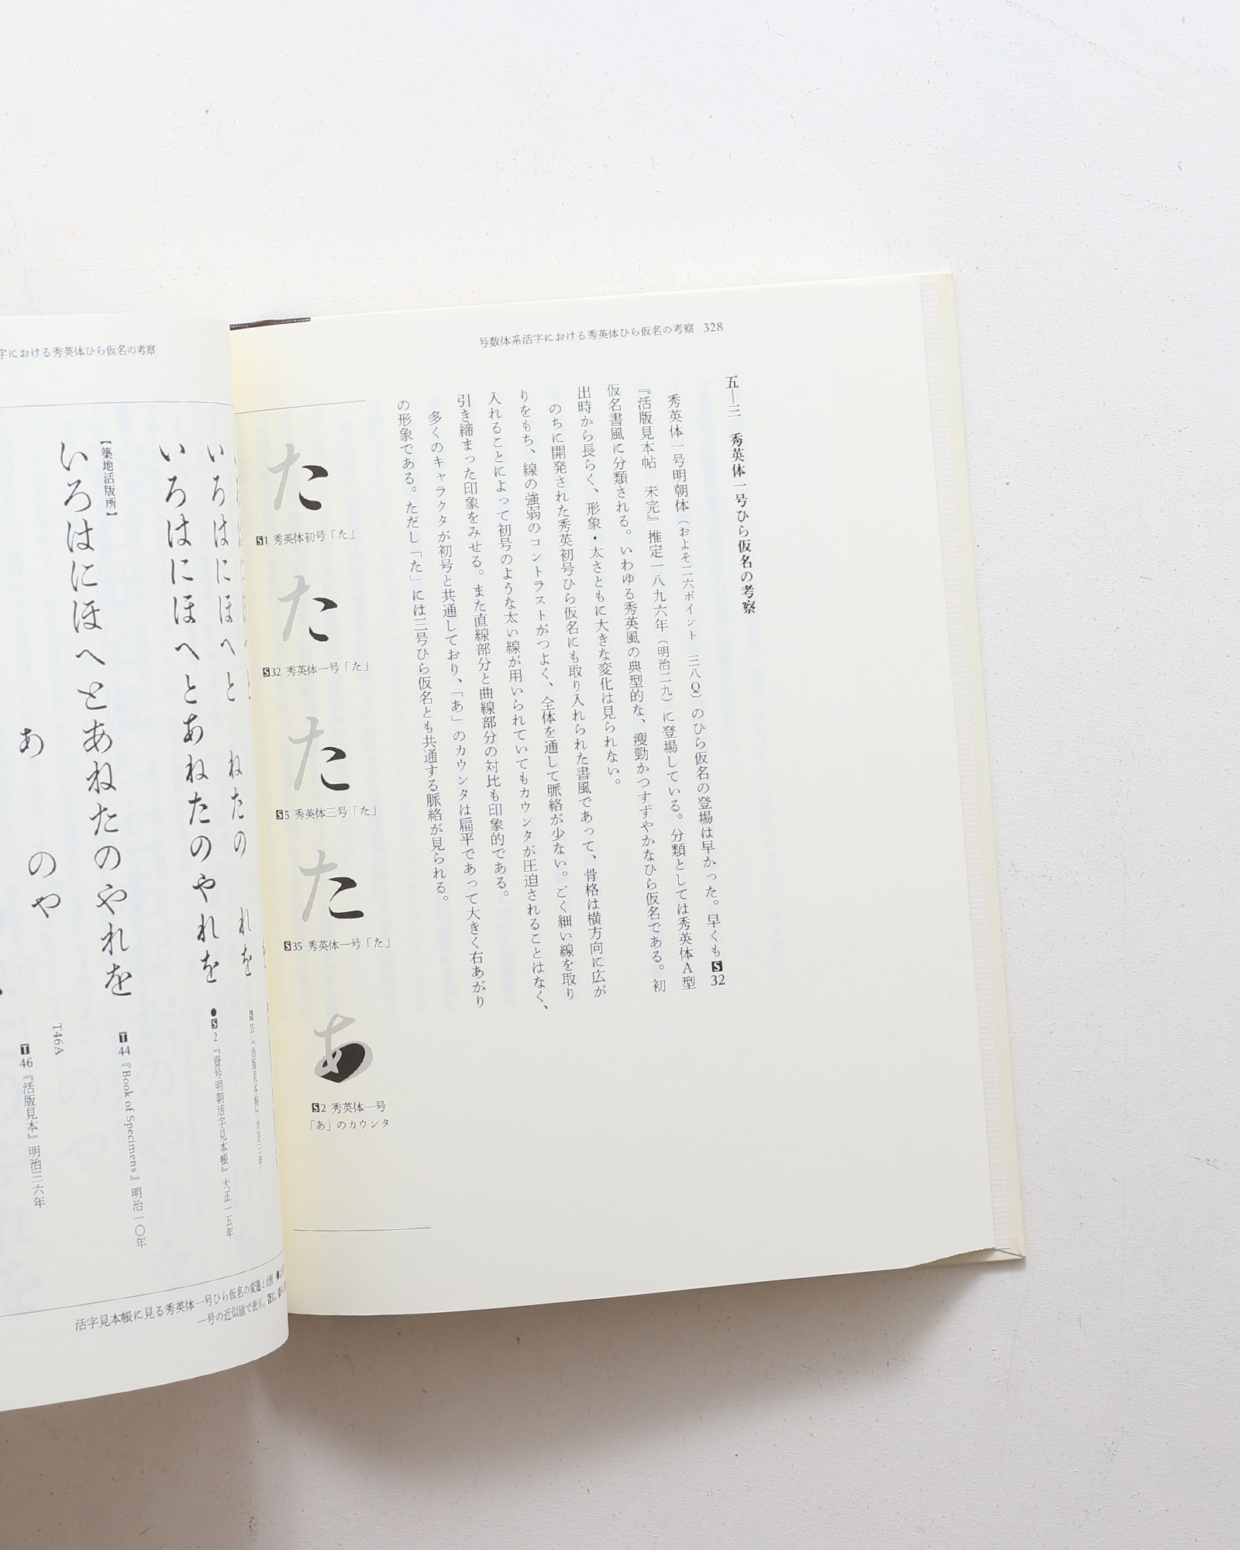 号数体系活字における秀英体ひら仮名の考察 328
五―三 秀英体一号ひら仮名の考察
秀英体一号明朝体（およそ二六ポイント 三八Q）のひら仮名の登場は早かった。早くもS32
『活版見本帖 未完』推定一八九六年（明治二九）に登場している。分類としては秀英体A型
仮名書風に分類される。いわゆる秀英風の典型的な、瘦勁かつすずやかなひら仮名である。初
出時から長らく、形象・太さともに大きな変化は見られない。
のちに開発された秀英初号ひら仮名にも取り入れられた書風であって、骨格は横方向に広が
りをもち、線の強弱のコントラストがつよく、全体を通して脈絡が少ない。ごく細い線を取り
入れることによって初号のような太い線が用いられていてもカウンタが圧迫されることはなく、
引き締まった印象をみせる。また直線部分と曲線部分の対比も印象的である。
多くのキャラクタが初号と共通しており、「あ」のカウンタは扁平であって大きく右あがり
の形象である。ただし「た」には三号ひら仮名とも共通する脈絡が見られる。
た
S1 秀英体初号「た」
た
S32 秀英体一号「た」
た
S5 秀英体三号「た」
た
S35 秀英体一号「た」
あ
S2 秀英体一号
「あ」のカウンタ
字における秀英体ひら仮名の考察
いろはにほへと ねたの れを
いろはにほへとあねたのやれを
●S2『壹号明朝活字見本帳』大正一五年
【築地活版所】
いろはにほへとあねたのやれを
T44『Book of Specimens』明治一〇年
T46A
あ のや
T46『活版見本』明治三六年
活字見本帳に見る秀英体一号ひら仮名の変遷と
一号の近似値で表示。